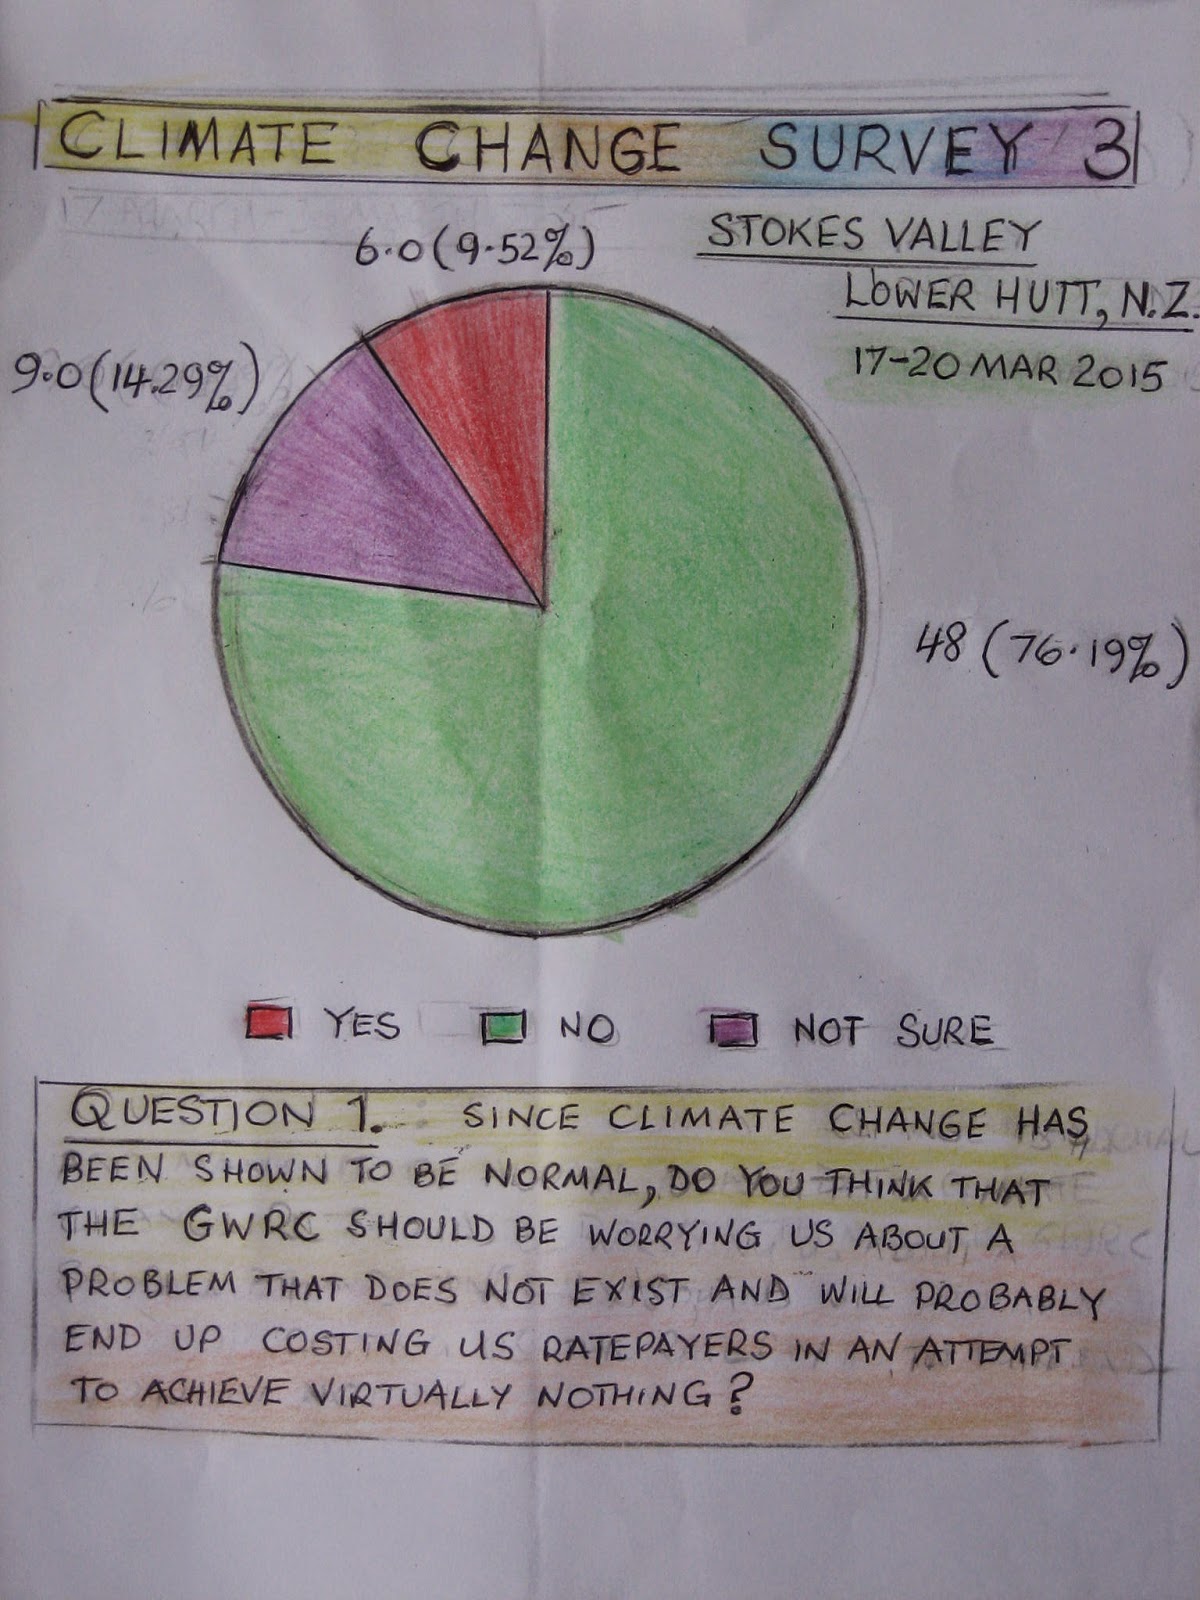 CLIMATE CHANGE SURVEY 3
STOKES VALLEY
6.0 (9.52%)
LOWER HUTT, N.Z.
9.0 (14.29%)
17-20 MAR 2015
48 (76.19%)
YES NO NOT SURE
QUESTION 1. SINCE CLIMATE CHANGE HAS
BEEN SHOWN TO BE NORMAL, DO YOU THINK THAT
THE GWRC SHOULD BE WORRYING US ABOUT A
PROBLEM THAT DOES NOT EXIST AND WILL PROBABLY
END UP COSTING US RATEPAYERS IN AN ATTEMPT
TO ACHIEVE VIRTUALLY NOTHING?